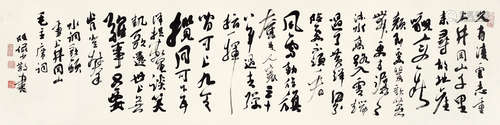 久有凌云志重
上井冈山千里
来寻故地旧
貌变新颜
到处莺歌燕
舞更有潺潺
流水高路入云端
过了黄洋界
险处不须看
风雷动旌旗
奋是人寰三十
八年过去弹
指一挥
间可上九天
揽月可下五
洋捉鳖谈笑
凯歌还世上无
难事只要
肯登攀
水调歌头
重上井冈山
毛主席词